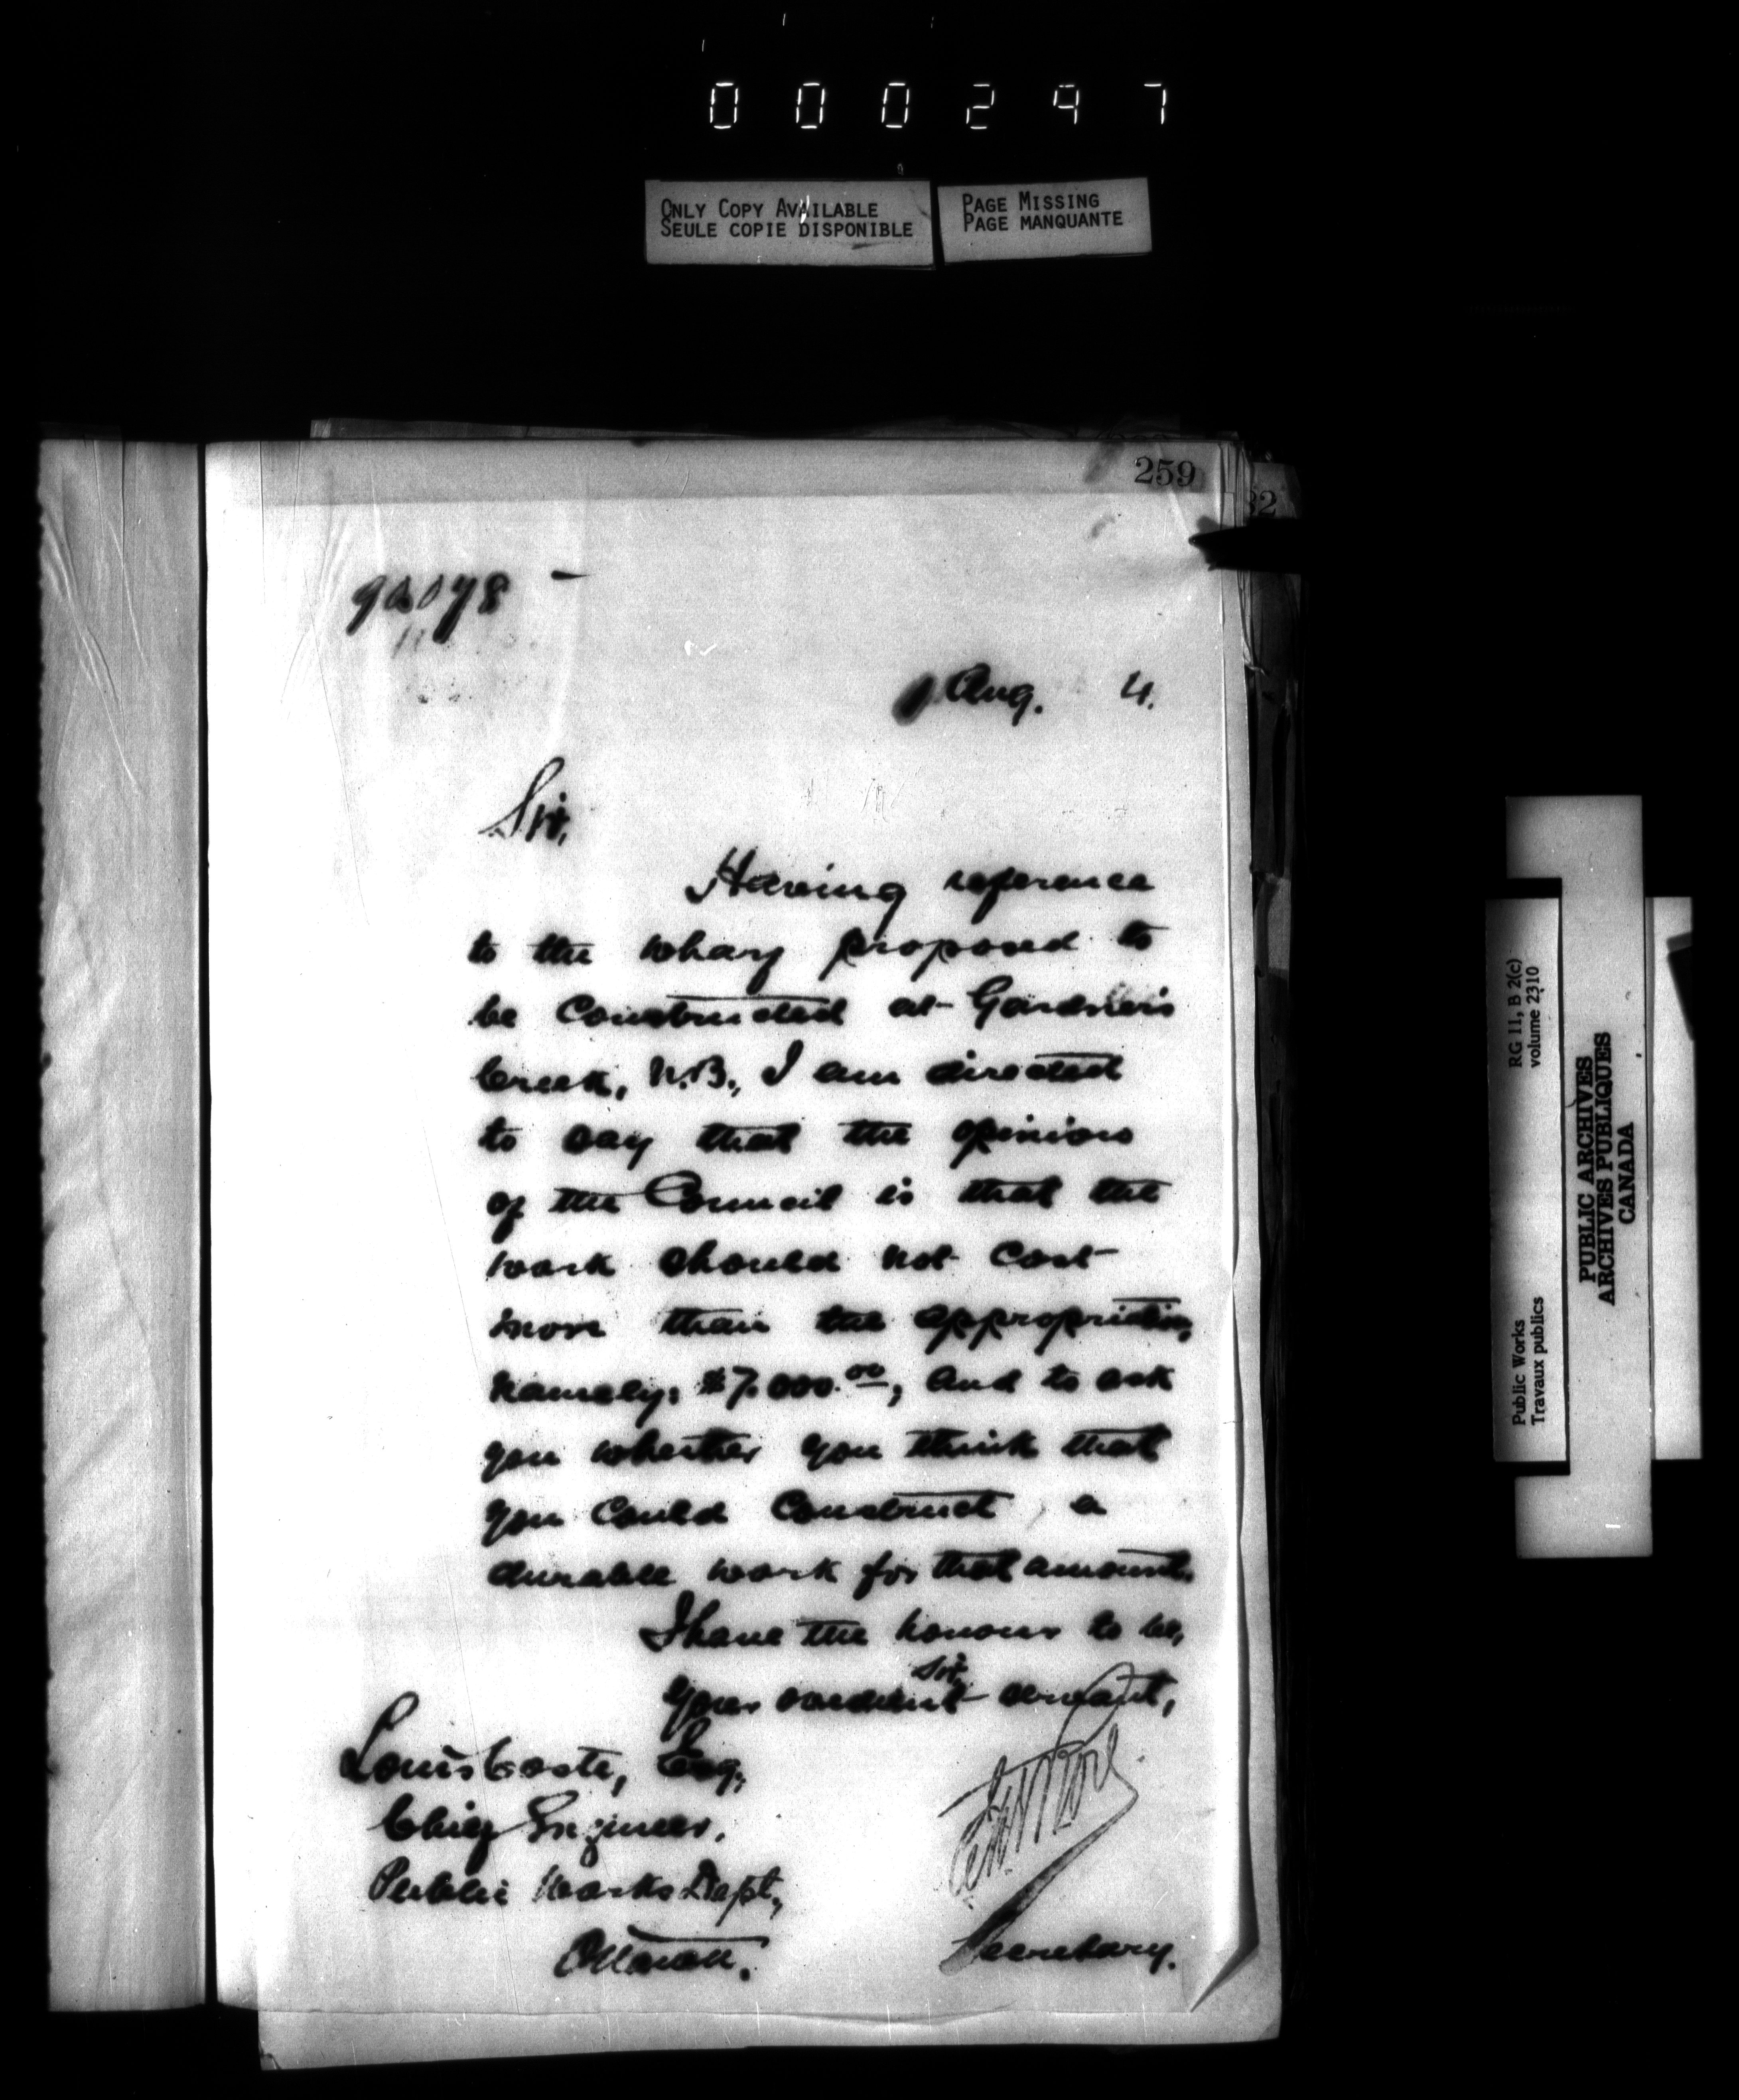 000297
ONLY COPY AVAILABLE
SEULE COPIE DISPONIBLE
PAGE MISSING
PAGE MANQUANTE
259
32
Aug. 4.
Sir,
Having reference
to the wharf proposed to
be constructed at Gardner's
Creek, N.B., I am directed
to say that the opinion
of the Council is that the
work should not cost
more than the appropriation,
namely: $7.000.00, and to ask
you whether you think that
you could construct a
durable work for that amount.
I have the honour to be,
Sir,
your obedient servant,
Louis Coste, Esq.,
Chief Engineer,
Public Works Dept.,
Ottawa.
Secretary.
RG 11, B 2(c)
volume 2310
Public Works
Travaux publics
PUBLIC ARCHIVES
ARCHIVES PUBLIQUES
CANADA